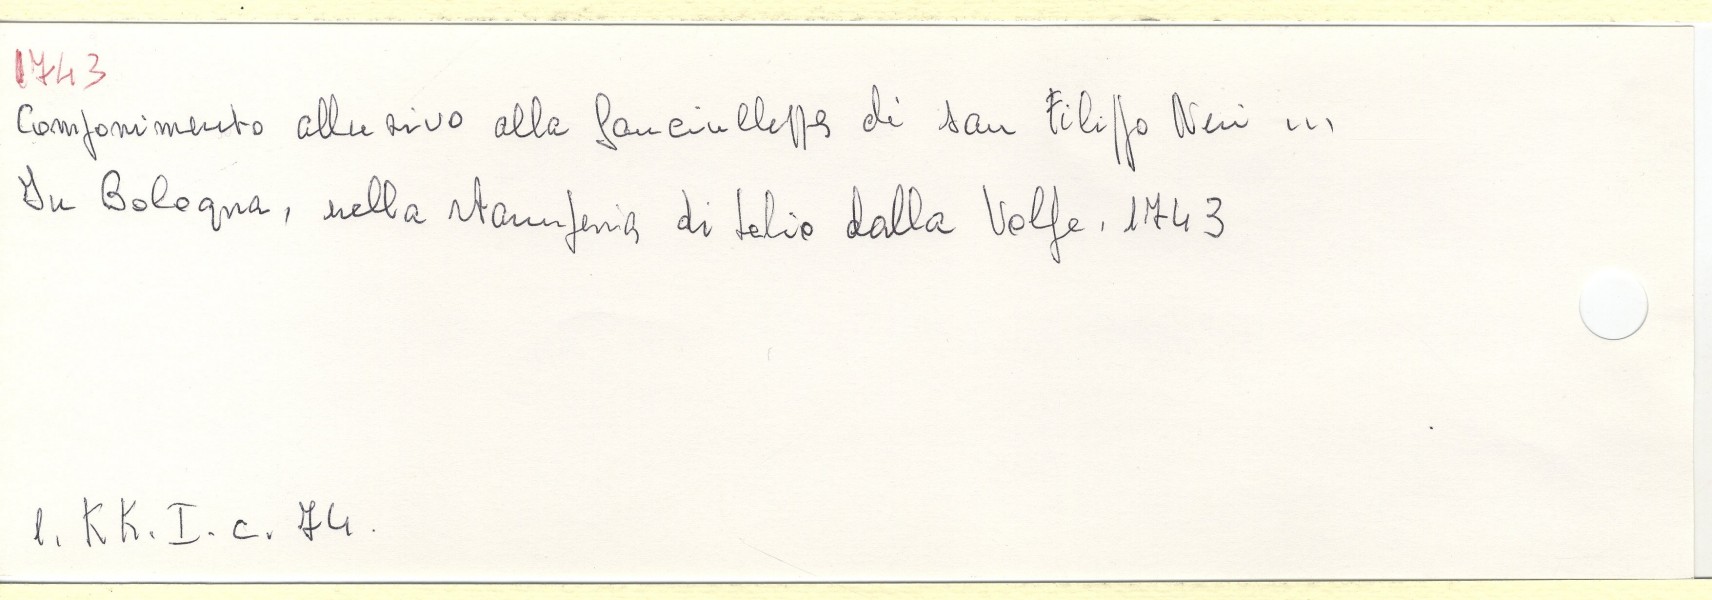 1743
Componimento allusivo alla fanciullezza di san Filippo Neri ...
In Bologna, nella stamperia di Lelio dalla Volpe, 1743
1. KK. I. c. 74.